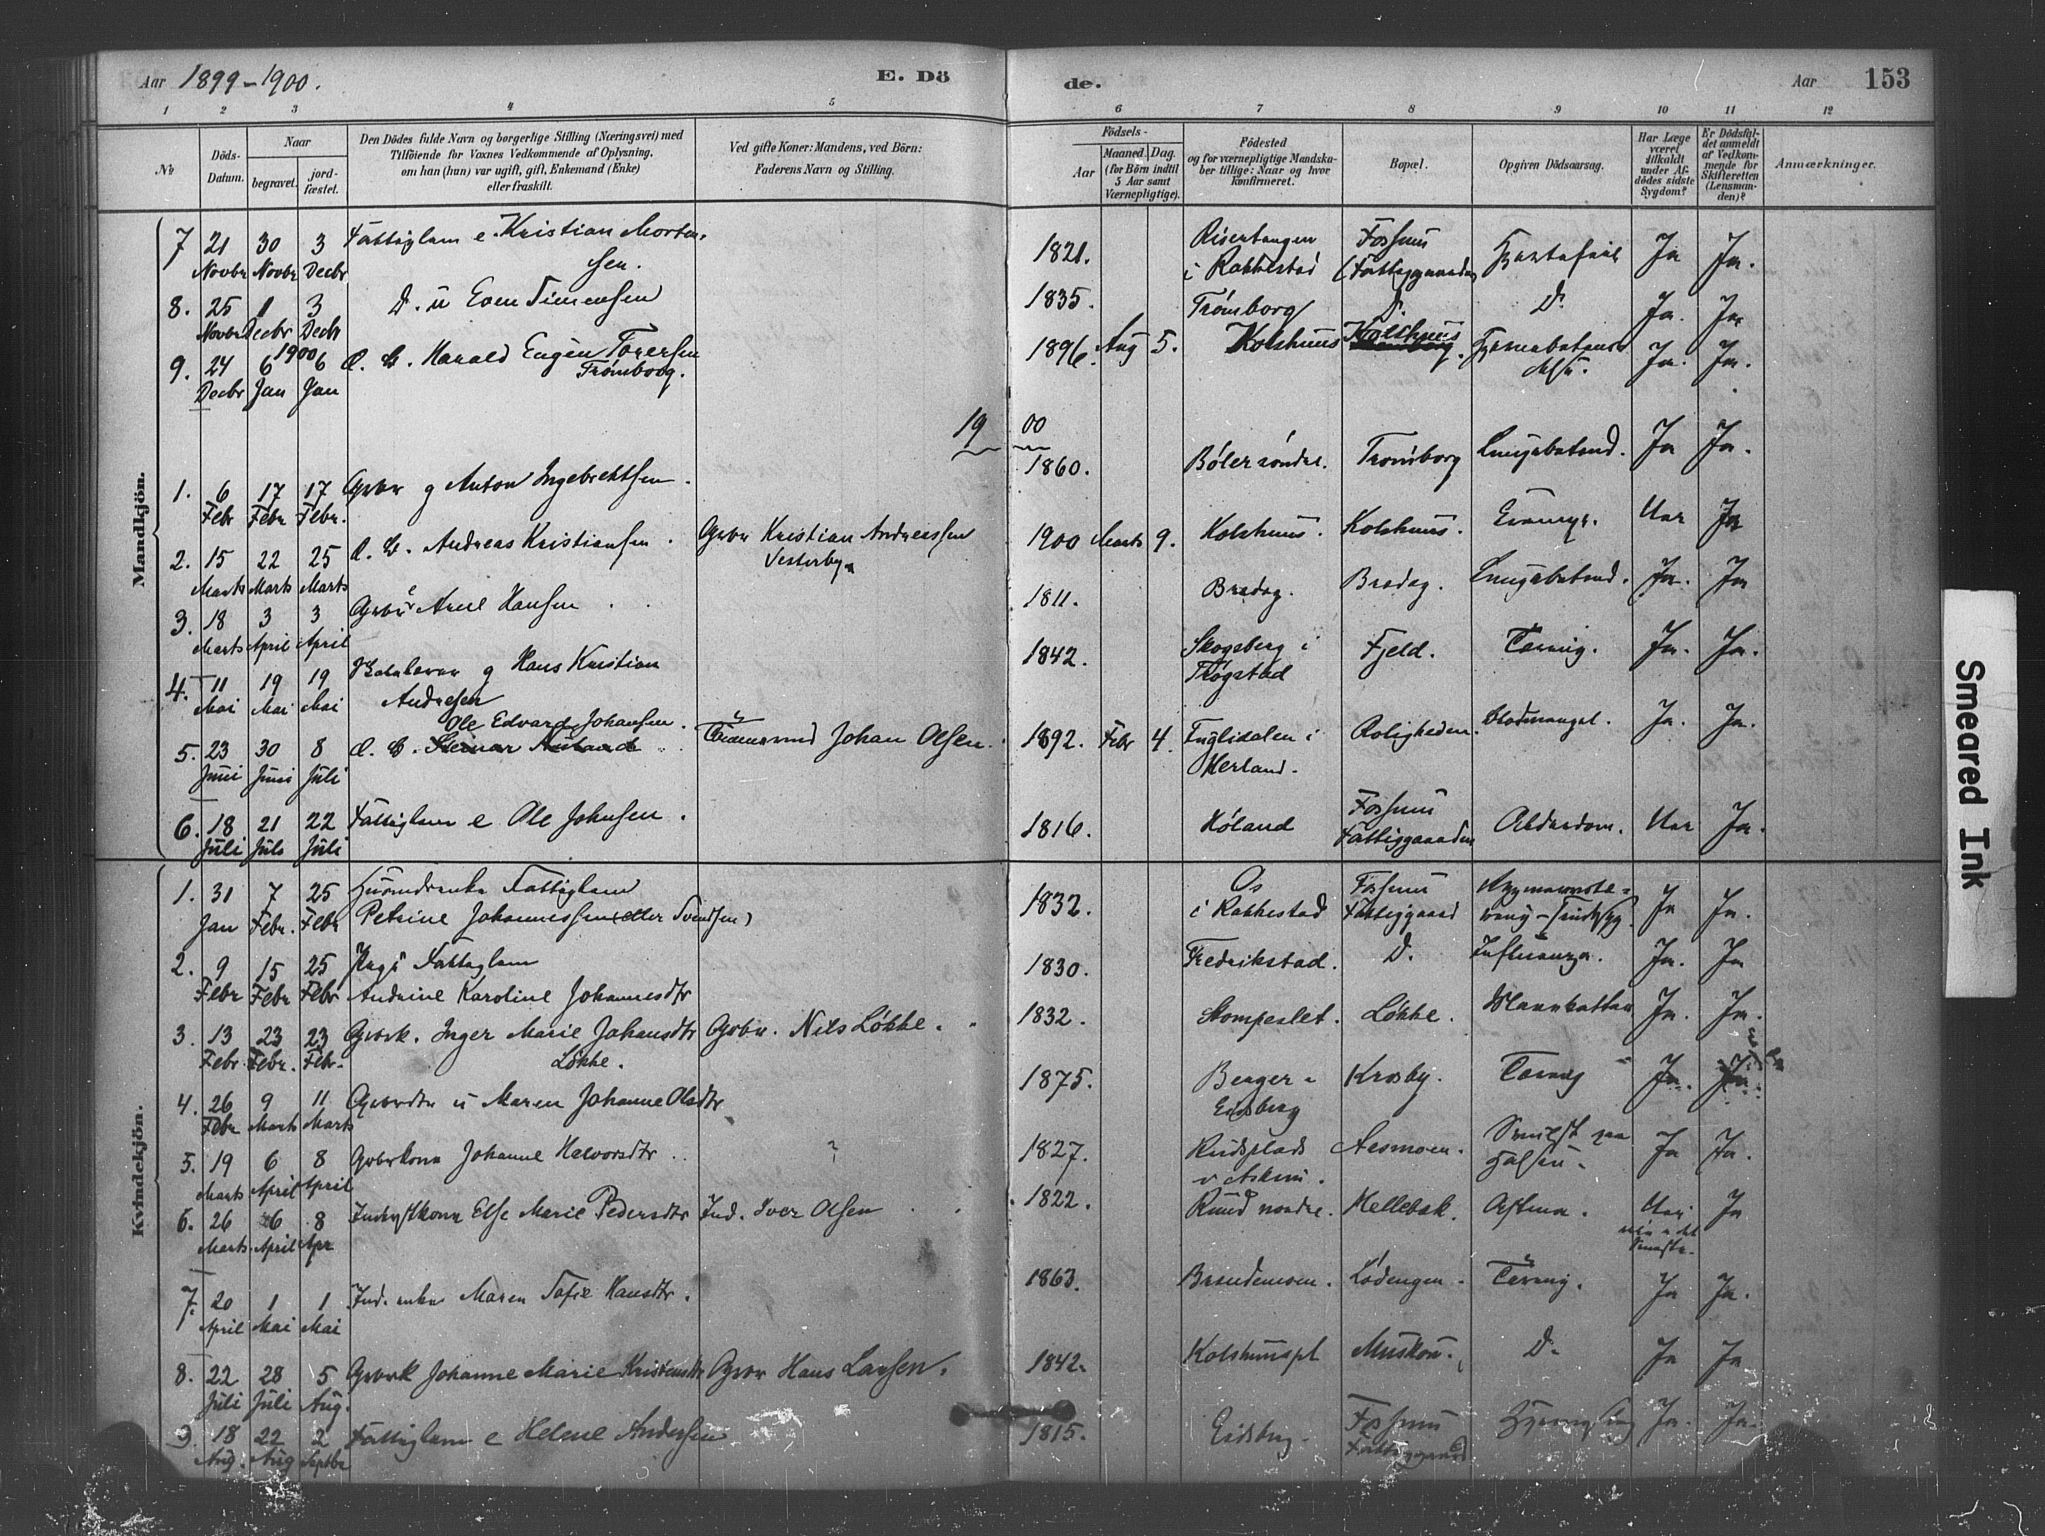 Aar 1899-1900.
E. Dö
de.
Aar 153
1 2 3 4 5 6 7 8 9 10 11 12
No
Döds-Datum.
Naar
begravet.
jord-fæstet.
Den Dödes fulde Navn og borgerlige Stilling (Næringsvei) med
Tilföiende for Voxnes Vedkommende af Oplysning,
om han (hun) var ugift, gift, Enkemand (Enke)
eller fraskilt.
Ved gifte Koner: Mandens, ved Börn:
Faderens Navn og Stilling.
Födsels-
Aar
Maaned. Dag.
(for Börn indtil
5 Aar samt
Værnepligtige).
Födested
og for værnepligtige Mandska-
ber tillige: Naar og hvor
konfirmeret.
Bopæl.
Opgiven Dödsaarsag.
Har Læge
været
tilkaldt
under Af-
dödes sidste
Sygdom?
Er Dödsfal-
det anmeldt
af Vedkom-
mende for
Skifteretten
(Lensman-
den)?
Anmærkninger.
Mandkjön.
7 21 Novbr 30 Novbr 3 Decbr Fattiglem e. Kristian Morten-
sen. 1821. Risertangen i Rakkestad Fossum (Fattiggaarden Hjertefeil Ja Ja.
8. 25 Novbr 1 Decbr 3 Decbr D. u Even Simensen 1835. Trømborg D. D. Ja. Ja
9. 24 Decbr 1900 6 Jan 6 Jan Harald Eugen Torersen
Trømborg. 1896. Aug 5. Kolshuus Kolshuus Ja. Ja.
1900
1. 6 Febr 17 Febr 17 Febr. Gbr g Anton Ingebrektsen. 1860. Böler söndre. Trømborg Lungebetænd. Ja Ja.
2. 15 Marts 22 Marts 25 Marts Andreas Kristiansen. Gbr Kristian Andreassen
Vesterby 1900 Marts 9. Kolshuus. Kolshuus. Uær Ja
3. 18 Marts 3 April 3 April Arne Hansen 1811. Bredag. Bredag. Lungebetænd. Ja. Ja
4. 11 Mai 19 Mai 19 Mai g Hans Kristian
Andresen 1842. Skogsberg i Trøgstad Fjeld. Tæring. Ja. Ja.
5. 23 Juni 30 Juni 8 Juli Ole Edvard Johansen. Johan Olsen. 1892. Febr 4. Fuglidalen i Herland. Roligheden. Blodmangel. Ja. Ja.
6. 18 Juli 21 Juli 22 Juli Fattiglem e Ole Johnsen. 1816. Høland Fossum Fattiggaarden Alderdom. Ja.
Kvindekjön.
1. 31 Jan 7 Febr. 25 Febr Husmdsenke Fattiglem
Petrine Johannessen (eller Svendsen) 1832. Os i Rakkestad Fossum Fattiggaard Ja Ja.
2. 9 Febr 15 Febr 25 Febr Pige Fattiglem
Andrine Karoline Johannesdtr 1830. Fredrikstad. D. Influenza. Ja. Ja
3. 13 Febr 23 Febr. 23 Febr. Gbrk. Inger Marie Johansdtr
Løkke. Gbr. Nils Løkke. 1832. Stomperlet. Løkke. Ja. Ja.
4. 26 Febr 9 Marts 11 Marts u Maren Johanne Olsdtr 1875. Berger Eidsberg Krosby. Tæring Ja. Ja.
5. 19 Marts 6 April 8 April Gbrkona Johanne Halvorsdtr ? 1827. Rudsplads v Askim. Aesmoen. Svulst paa Halsen. Ja Ja.
6. 26 Marts 6 April 8 Apr Else Marie Pedersdtr Ind. Iver Olsen 1822. Ruud nordre. Hellebæk. Astma. Ja
7. 20 April 1 Mai 1 Mai Ind. enke Maren Sofie Hansdtr. 1863. Brændemoen. Lödengen Tæring. Ja Ja.
8. 22 Juli 28 Juli 5 Aug. Gbrk Johanne Marie Kristensdtr Gbr Hans Larsen. 1842. Kolshuuspl D. Ja Ja
9 18 Aug. 22 Aug 2 Septbr Fattiglem e Helene Andersen 1815. Eidsberg Fossum Fattiggaard Ja. Ja.
Smeared Ink